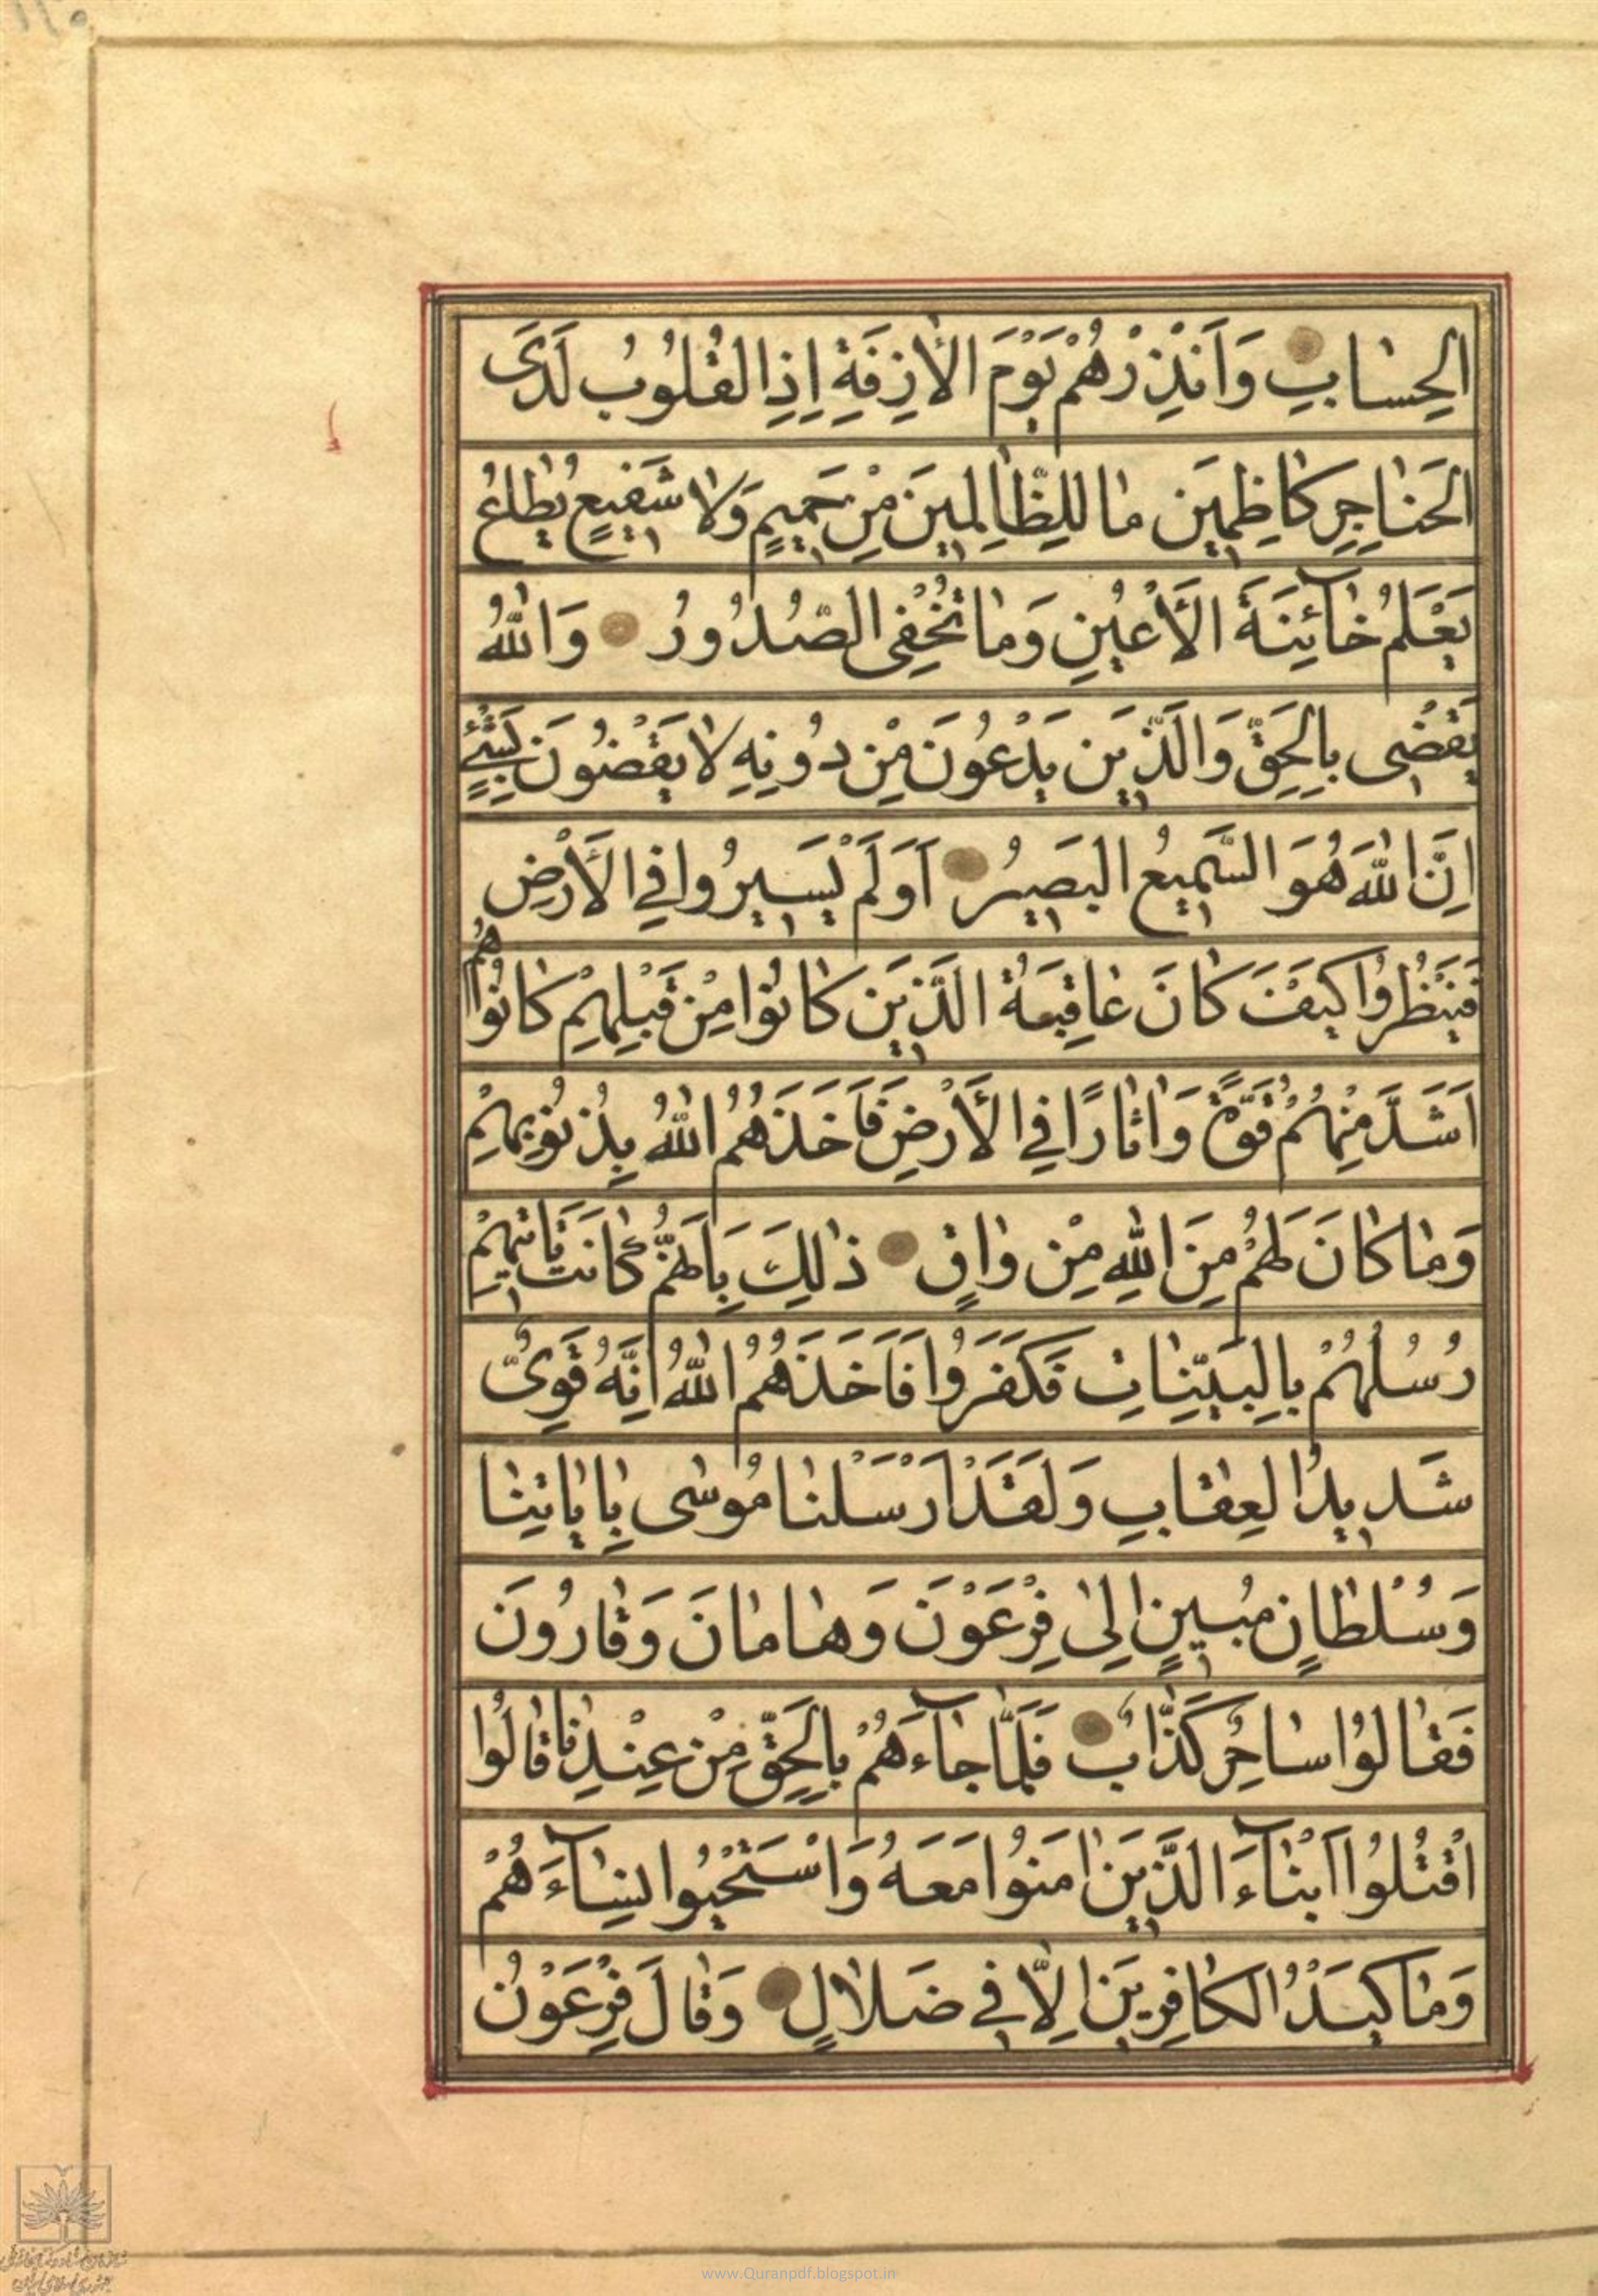 الحِسٰابِ وَاَنْذِرْهُمْ يَوْمَ الْاٰزِفَةِ اِذِ القُلُوبُ لَدَى
الحَنٰاجِرِ كٰاظِمِينَ مٰا لِلظّٰالِمِينَ مِنْ حَمِيمٍ وَلٰا شَفِيعٍ يُطٰاعُ
يَعْلَمُ خٰآئِنَةَ الْأَعْيُنِ وَمٰا تُخْفِى الصُّدُورُ وَاللّٰهُ
يَقْضِى بِالحَقِّ وَالَّذِينَ يَدْعُونَ مِنْ دُونِهِ لٰا يَقْضُونَ بِشَىْءٍ
اِنَّ اللّٰهَ هُوَ السَّمِيعُ البَصِيرُ اَوَلَمْ يَسِيرُوا فِى الْأَرْضِ
فَيَنْظُرُوا كَيْفَ كٰانَ عٰاقِبَةُ الَّذِينَ كٰانُوا مِنْ قَبْلِهِمْ كٰانُوا هُمْ
اَشَدَّ مِنْهُمْ قُوَّةً وَاٰثٰارًا فِى الْأَرْضِ فَاَخَذَهُمُ اللّٰهُ بِذُنُوبِهِمْ
وَمٰا كٰانَ لَهُمْ مِنَ اللّٰهِ مِنْ وٰاقٍ ذٰلِكَ بِاَنَّهُمْ كٰانَتْ تَاْتِيهِمْ
رُسُلُهُمْ بِالبَيِّنٰاتِ فَكَفَرُوا فَاَخَذَهُمُ اللّٰهُ اِنَّهُ قَوِىٌّ
شَدِيدُ العِقٰابِ وَلَقَدْ اَرْسَلْنٰا مُوسٰى بِاٰيٰاتِنٰا
وَسُلْطٰانٍ مُبِينٍ اِلٰى فِرْعَوْنَ وَهٰامٰانَ وَقٰارُونَ
فَقٰالُوا سٰاحِرٌ كَذّٰابٌ فَلَمّٰا جٰآءَهُمْ بِالحَقِّ مِنْ عِنْدِنٰا قٰالُوا
اقْتُلُوا اَبْنٰآءَ الَّذِينَ اٰمَنُوا مَعَهُ وَاسْتَحْيُوا نِسٰآءَهُمْ
وَمٰا كَيْدُ الكٰافِرِينَ اِلّٰا فِى ضَلٰالٍ وَقٰالَ فِرْعَوْنُ
www.Quranpdf.blogspot.in